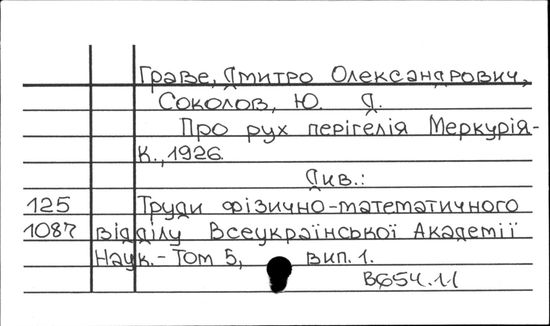 Граве, Дмитро Олександрович,
Соколов, Ю. Д.
Про рух перігелія Меркурія-
К., 1926.
Див.:
125 Труди фізично-математичного
1087 відділу Всеукраїнської Академії
Наук.-Том 5, вип. 1.